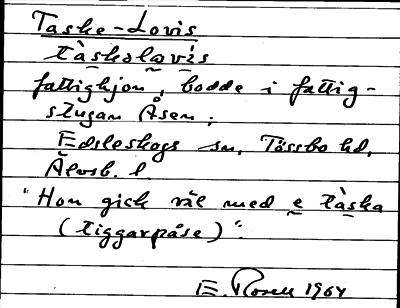 Taske-Lovis
tàskəlɷvis
fattighjon, bodde i fattig-
stugan Åsen.
Edsleskogs sn, Tössbo hd,
Älvsb. l.
"Hon gick väl med e tàska
(tiggarpåse)".
E. Rosell 1964